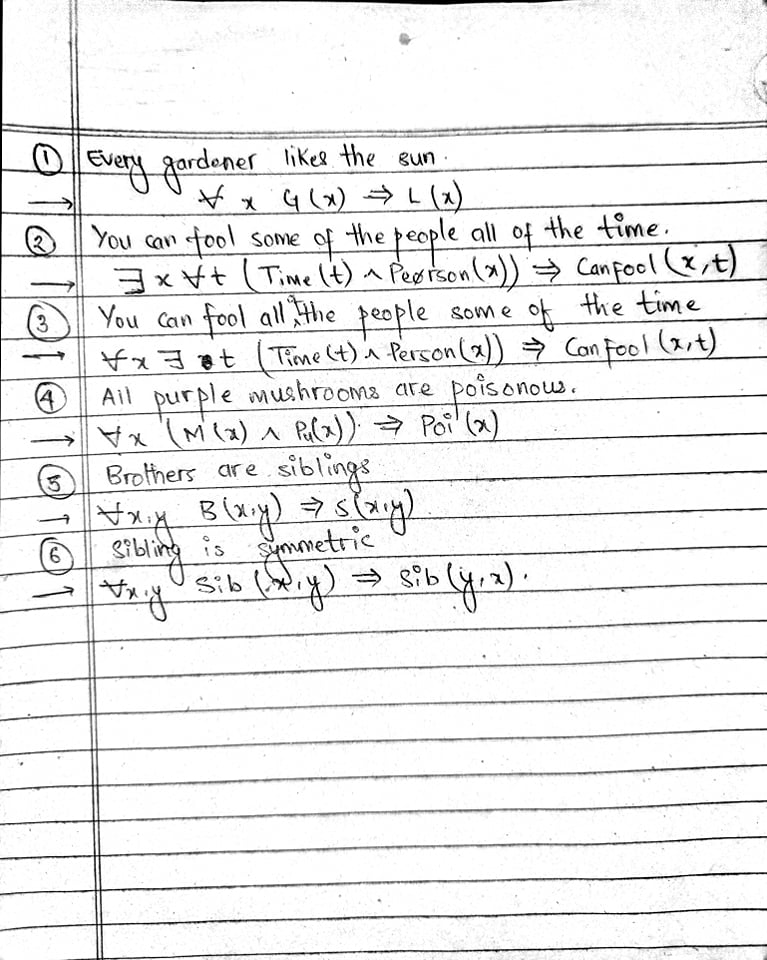 ① Every gardener likes the sun.
→ ∀ x G(x) ⇒ L(x)
② You can fool some of the people all of the time.
→ ∃ x ∀ t (Time(t) ∧ Person(x)) ⇒ Canfool(x,t)
③ You can fool all of the people some of the time
→ ∀ x ∃ t (Time(t) ∧ Person(x)) ⇒ Canfool(x,t)
④ All purple mushrooms are poisonous.
→ ∀x (M(x) ∧ Pu(x)) ⇒ Poi(x)
⑤ Brothers are siblings
→ ∀x,y B(x,y) ⇒ S(x,y)
⑥ Sibling is symmetric
→ ∀x,y Sib(x,y) ⇒ Sib(y,x).